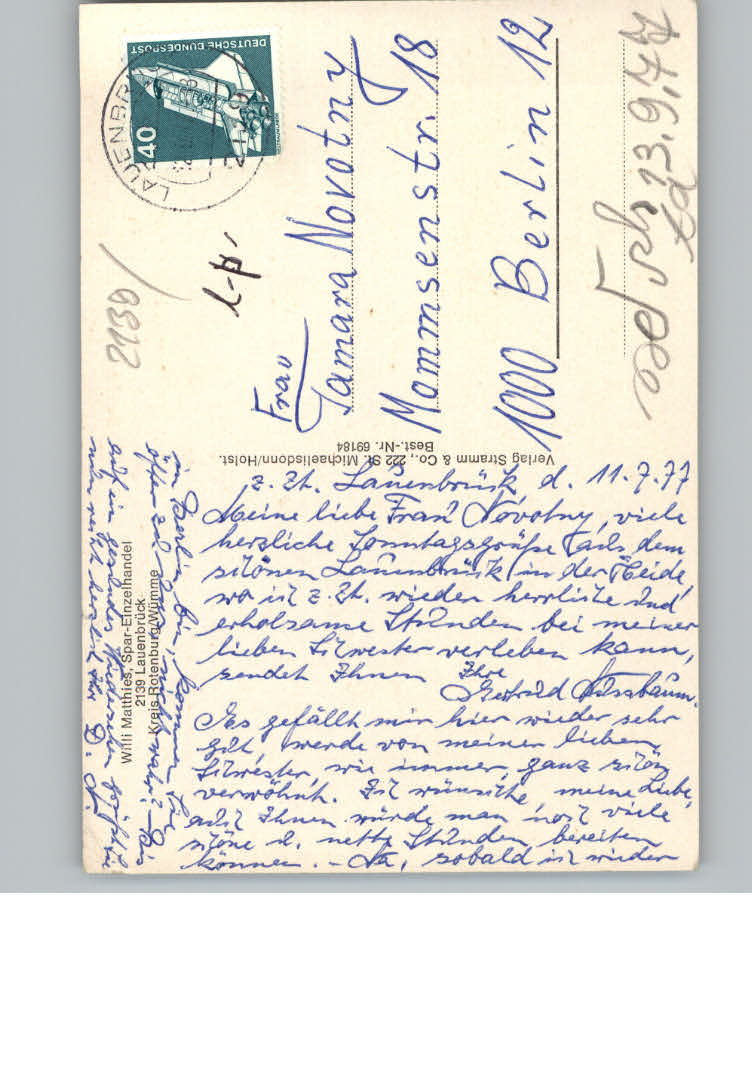 z. Zt. Lauenbrück, d. 11.7.77
Meine liebe Frau Novotny, viele
herzliche Sonntagsgrüße aus dem
schönen Lauenbrück in der Heide,
wo ich z. Zt. wieder herrliche und
erholsame Stunden bei meiner
lieben Schwester verleben kann,
sendet Ihnen Ihre
Gertrud Nussbaum.
Es gefällt mir hier wieder sehr
gut, werde von meiner lieben
Schwester, wie immer, ganz schön
verwöhnt. Ich wünschte, meine Liebe,
auch Ihnen würde man noch viele
schöne u. nette Stunden bereiten
können. - Na, sobald ich wieder
in Berlin bin, kommen Sie
öfter zu mir, nicht wahr? Bis
auf ein gesundes Wiedersehen grüßt Sie
nun recht herzlich Ihre G. N.
Willi Matthies, Spar-Einzelhandel
2139 Lauenbrück
Kreis Rotenburg/Wümme
Verlag Stramm & Co., 222 St. Michaelisdonn/Holst.
Best.-Nr. 69184
2139
DEUTSCHE BUNDESPOST
40
LAUENBR
Frau
Tamara Novotny
Mommsenstr. 18
1000 Berlin 12
13.9.77